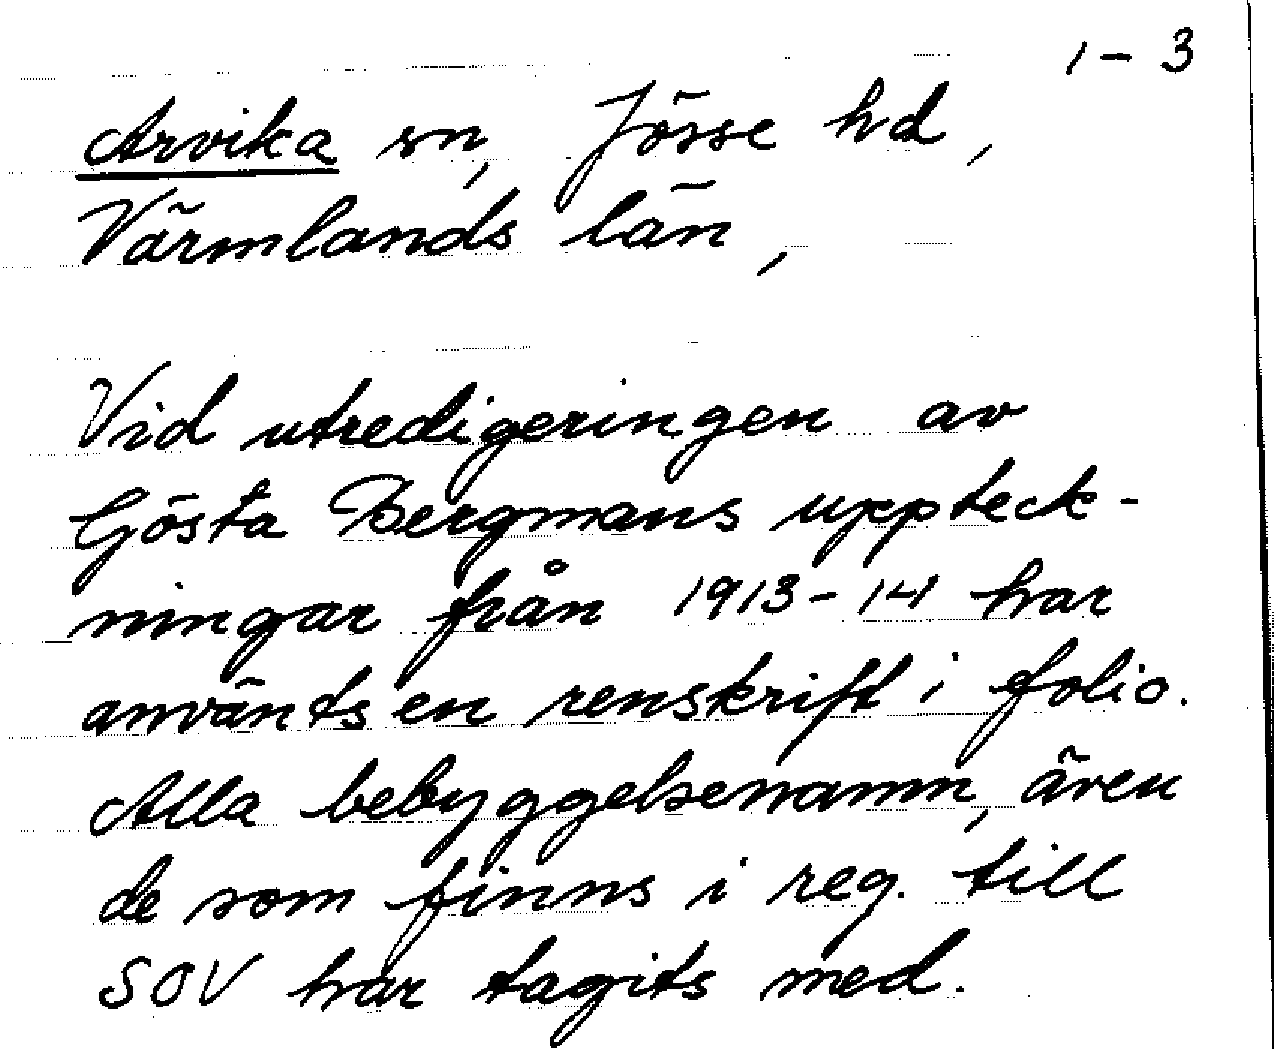 1-3
Arvika sn, Jösse hd,
Värmlands län,
Vid utredigeringen av
Gösta Bergmans uppteck-
ningar från 1913-14 har
använts en renskrift i folio.
Alla bebyggelsenamn, även
de som finns i reg. till
SOV har tagits med.